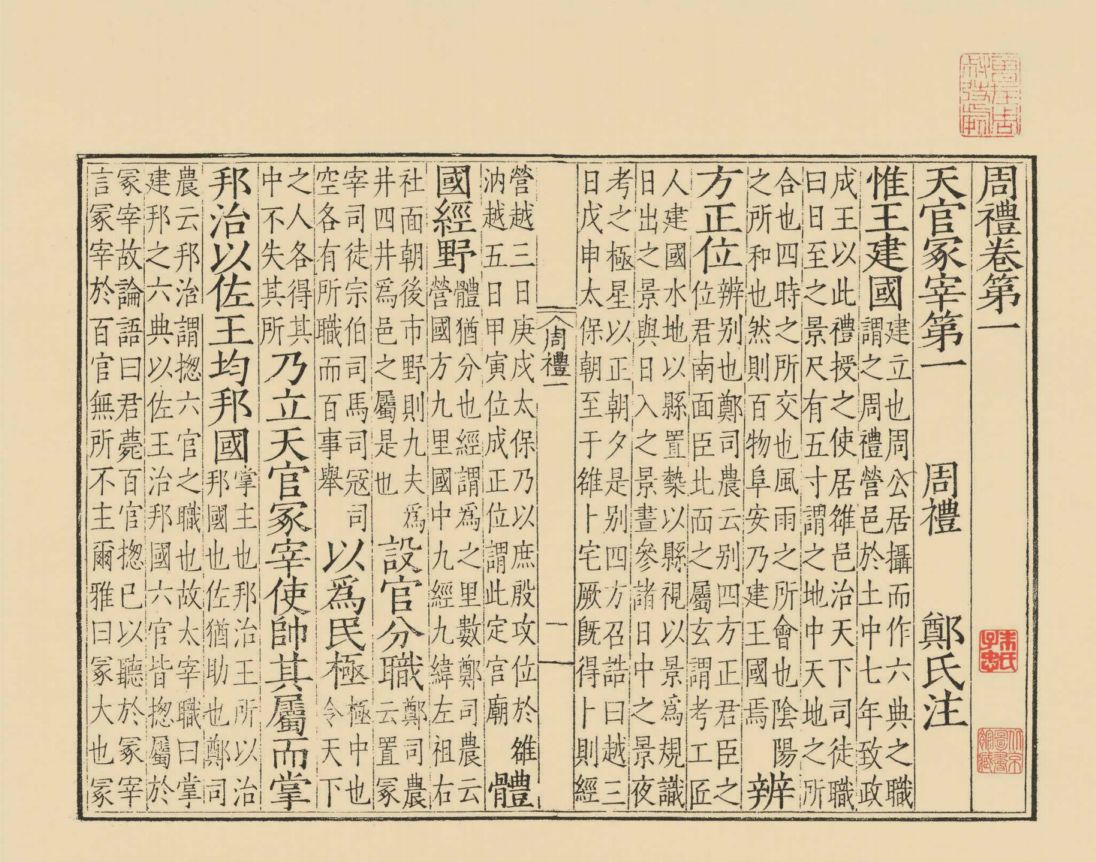 周禮卷第一
天官冢宰第一 周禮 鄭氏注
惟王建國 建立也周公居攝而作六典之職
謂之周禮營邑於土中七年致政
成王以此禮授之使居雒邑治天下司徒職
曰日至之景尺有五寸謂之地中天地之所
合也四時之所交也風雨之所會也陰陽
之所和也然則百物阜安乃建王國焉 辨
方正位 辨别也鄭司農云别四方正君臣之
位君南面臣北面之屬玄謂考工匠
人建國水地以縣置槷以縣視以景爲規識
日出之景與日入之景晝參諸日中之景夜
考之極星以正朝夕是别四方召誥曰越三
日戊申太保朝至于雒卜宅厥既得卜則經
周禮一 一
營越三日庚戌太保乃以庶殷攻位於雒
汭越五日甲寅位成正位謂此定宮廟 體
國經野 體猶分也經謂爲之里數鄭司農云
營國方九里國中九經九緯左祖右
社面朝後市野則九夫爲
井四井爲邑之屬是也 設官分職 鄭司農
云置冢
宰司徒宗伯司馬司寇司
空各有所職而百事舉 以爲民極 極中也
令天下
之人各得其
中不失其所 乃立天官冢宰使帥其屬而掌
邦治以佐王均邦國 掌主也邦治王所以治
邦國也佐猶助也鄭司
農云邦治謂揔六官之職也故太宰職曰掌
建邦之六典以佐王治邦國六官皆揔屬於
冢宰故論語曰君薨百官揔己以聽於冢宰
言冢宰於百官無所不主爾雅曰冢大也冢